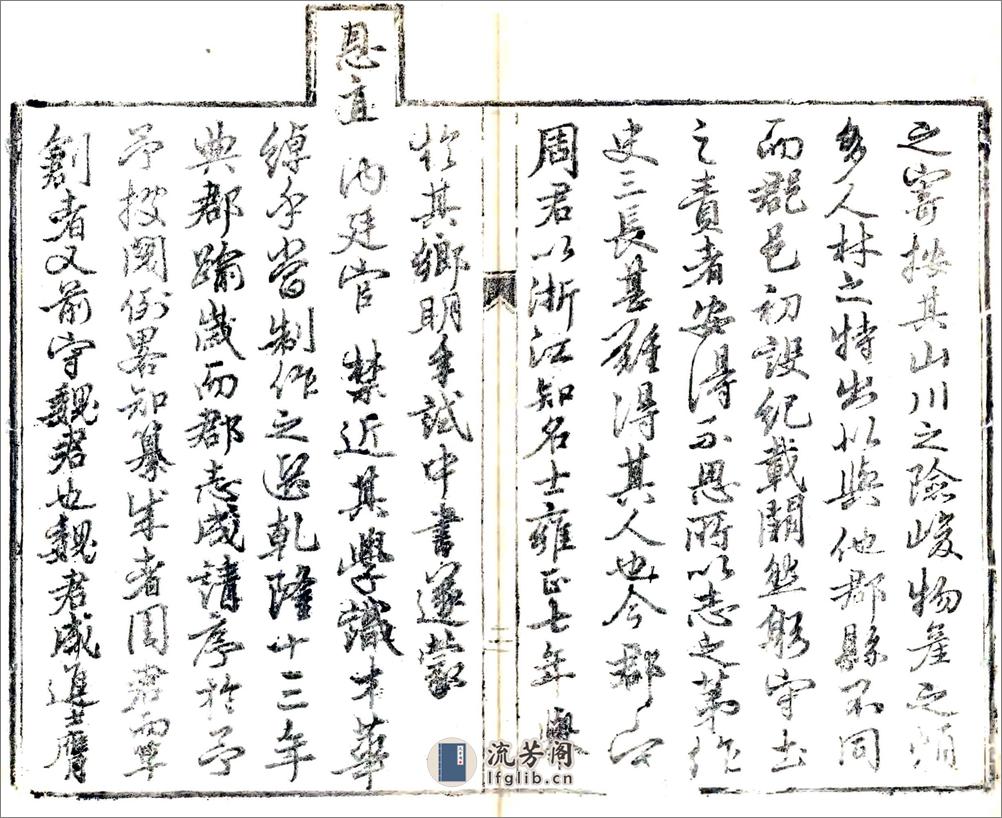 之寄按其山川之險峻物產之頗
多人材之特出以與他郡縣不同
而郡邑初設紀載闕然躬守土
之責者安得不思所以志之第作
史三長甚難得其人也今郡守
周君以浙江知名士雍正七年舉
於其鄉明年試中書遂蒙
恩直
內廷官禁近其學識才華
綽乎當制作之選乾隆十三年
典郡踰歲而郡志成請序於予
予按閱例畧知纂成者周君而草
創者又前守魏君也魏君咸進士膺
流芳阁
lfglib.cn